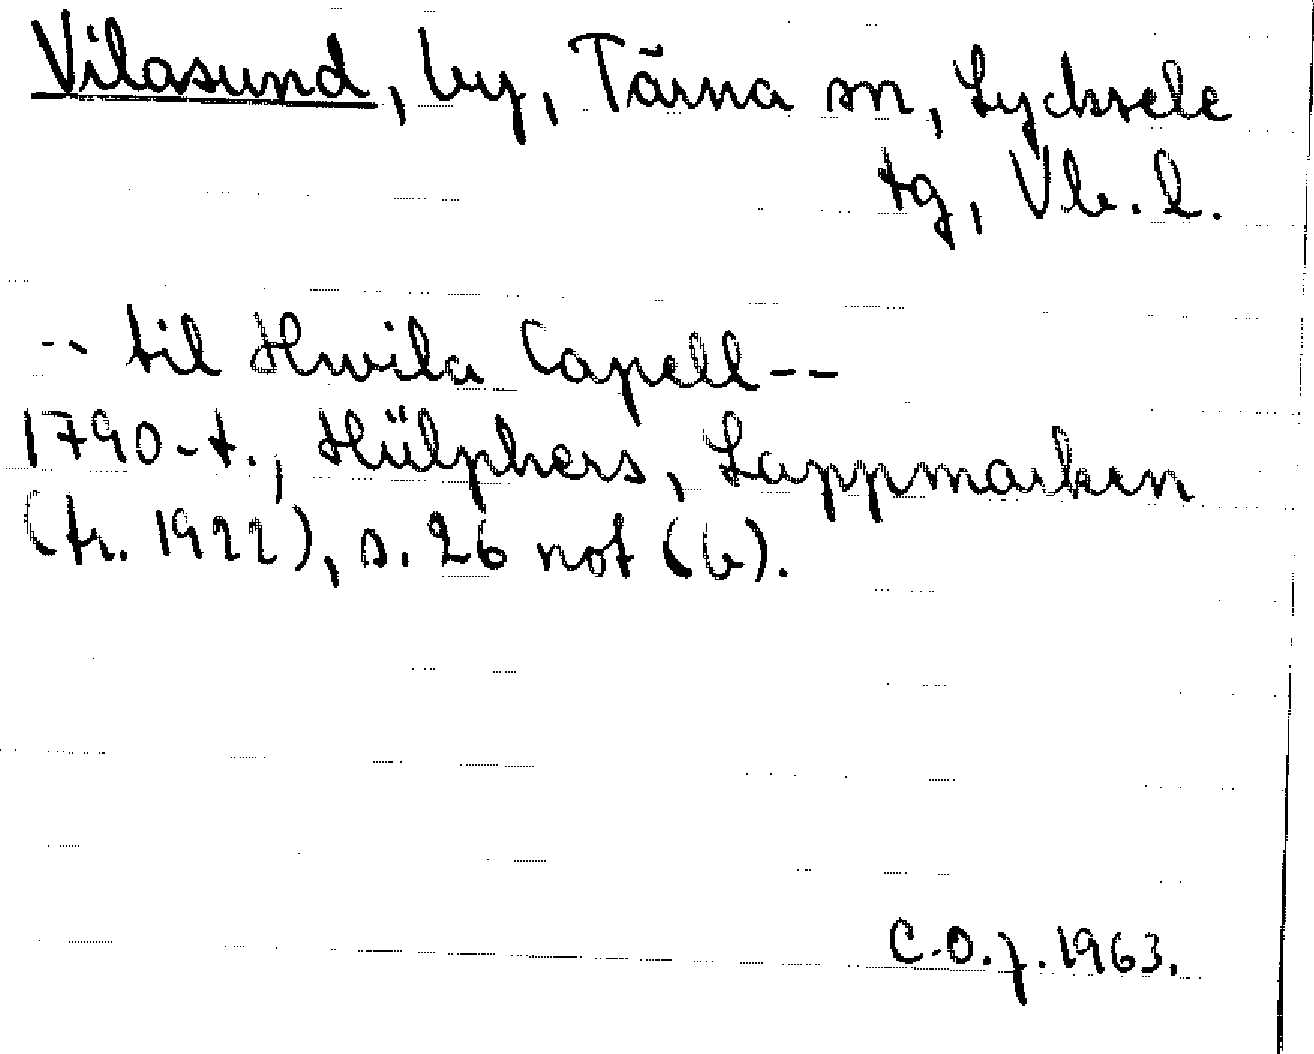 Vilasund, by, Tärna sn, Lycksele
tg, Vb. l.
-- til Hwila Capell --
1790-t., Hülphers, Lappmarken
(tr. 1922), s. 26 not (b).
C.O.f. 1963.